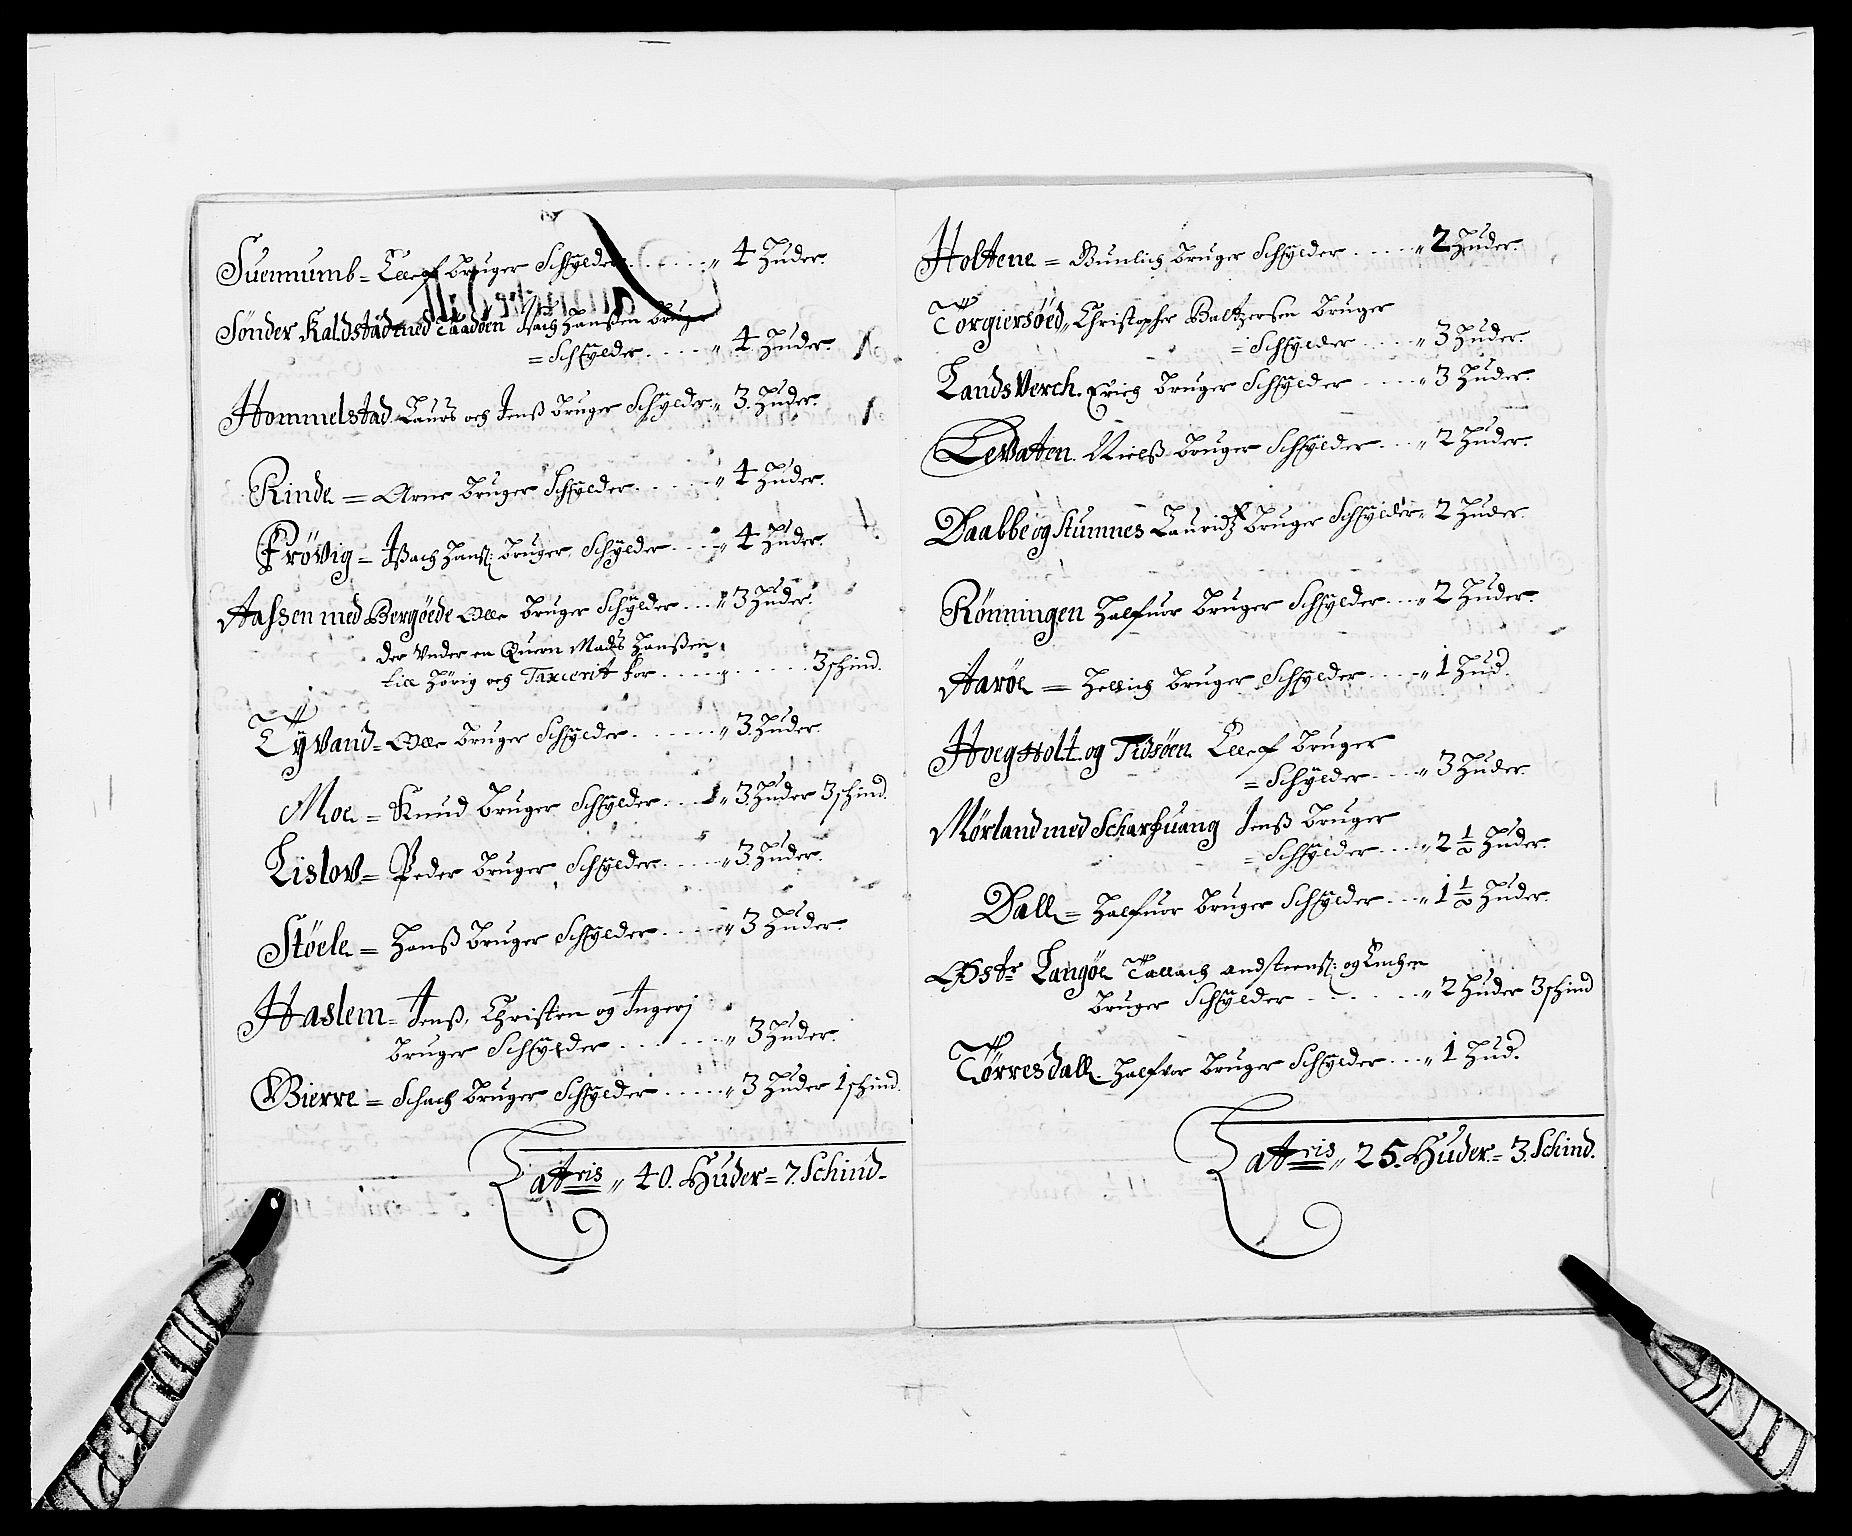 Suennumb = Ellef bruger Schylder . . . . . „ 4 Huder.
Sønder Kaldstad med Taadden Isach Hanßen bruger
= Schylder . . . . „ 4 Huder.
Hommelstad Laurs och Jenß bruger Schylder „ 3. Huder.
Rinde = Arne bruger Schylder . . . . . „ 4 Huder.
Frøvig = Ißach Hanß: bruger Schylder . . . „ 4 Huder.
Aassen med Bergøede Olle bruger Schylder . . . „ 3 Huder.
der Vnder en Quern Mads Hanßen
till hørig och Taxerit for . . . . „ . . . . . 3 schind.
Tyvand = Olle bruger Schylder . . . . . „ 3 Huder.
Moe = Knud bruger Schylder . . . „ 3 Huder 3 schind.
Lislov = Peder bruger Schylder . . . . „ 3. Huder.
Støele = Hanß bruger Schylder . . . . „ 3 Huder.
Haslem = Jenß, Christen og Ingerj
bruger Schylder . . . . . . „ 3 Huder.
Bierre = Schach bruger Schylder . . . . „ 3 Huder 1 schind.
Latris „ 40. Huder = 7. Schind -
Holtene = Gunlich bruger Schylder . . . . „ 2 Huder.
Torgiersøed „ Christopher Baltzersen bruger
= Schylder . . . . „ 3 Huder.
Lands Verch. Erich bruger Schylder . . . . „ 3 Huder.
Levaten. Nielß bruger Schylder . . . „ 2 Huder.
Daabbe og Stumnes Lauridtz bruger Schylder „ 2 Huder
Rønningen Halfuor bruger Schylder . . . „ 2 Huder.
Aarøe = Hellich bruger Schylder . . . . „ 1 Hud.
Hoegholt og Tidsøen Ellef bruger
= Schylder . . . „ 3 Huder.
Mørland med Scharfuang Jenß bruger
= Schylder . . . „ 2 ½ Huder.
Dall = Halfuor bruger Schylder . . . „ 1 ½ Huder.
Østr Langøe Tallach andsteenß: og Enchen
bruger Schylder . . . . . . „ 2 Huder 3 schind
Tørresdall. Halfvor bruger Schylder . . . „ 1 Hud.
Latris „ 25. Huder = 3. Schind.